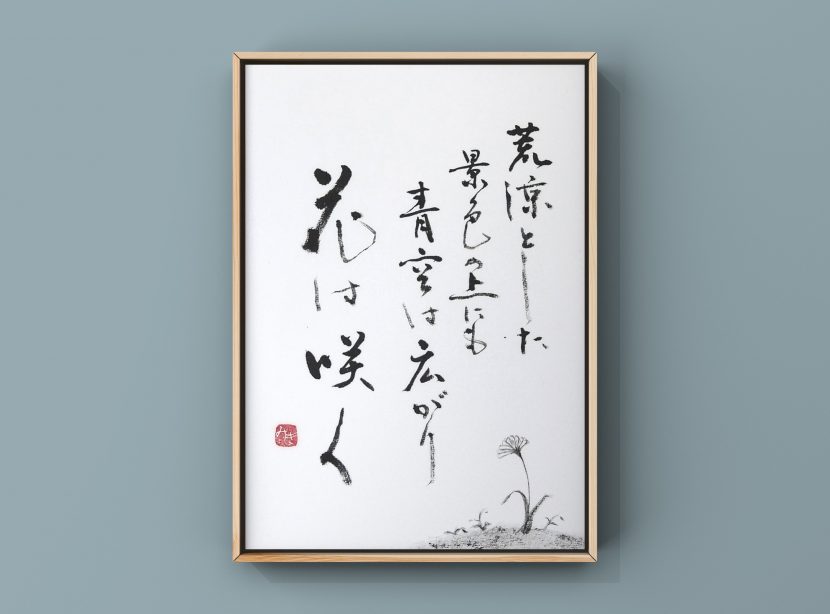 荒涼とした
景色の上にも
青空は広がり
花は咲く